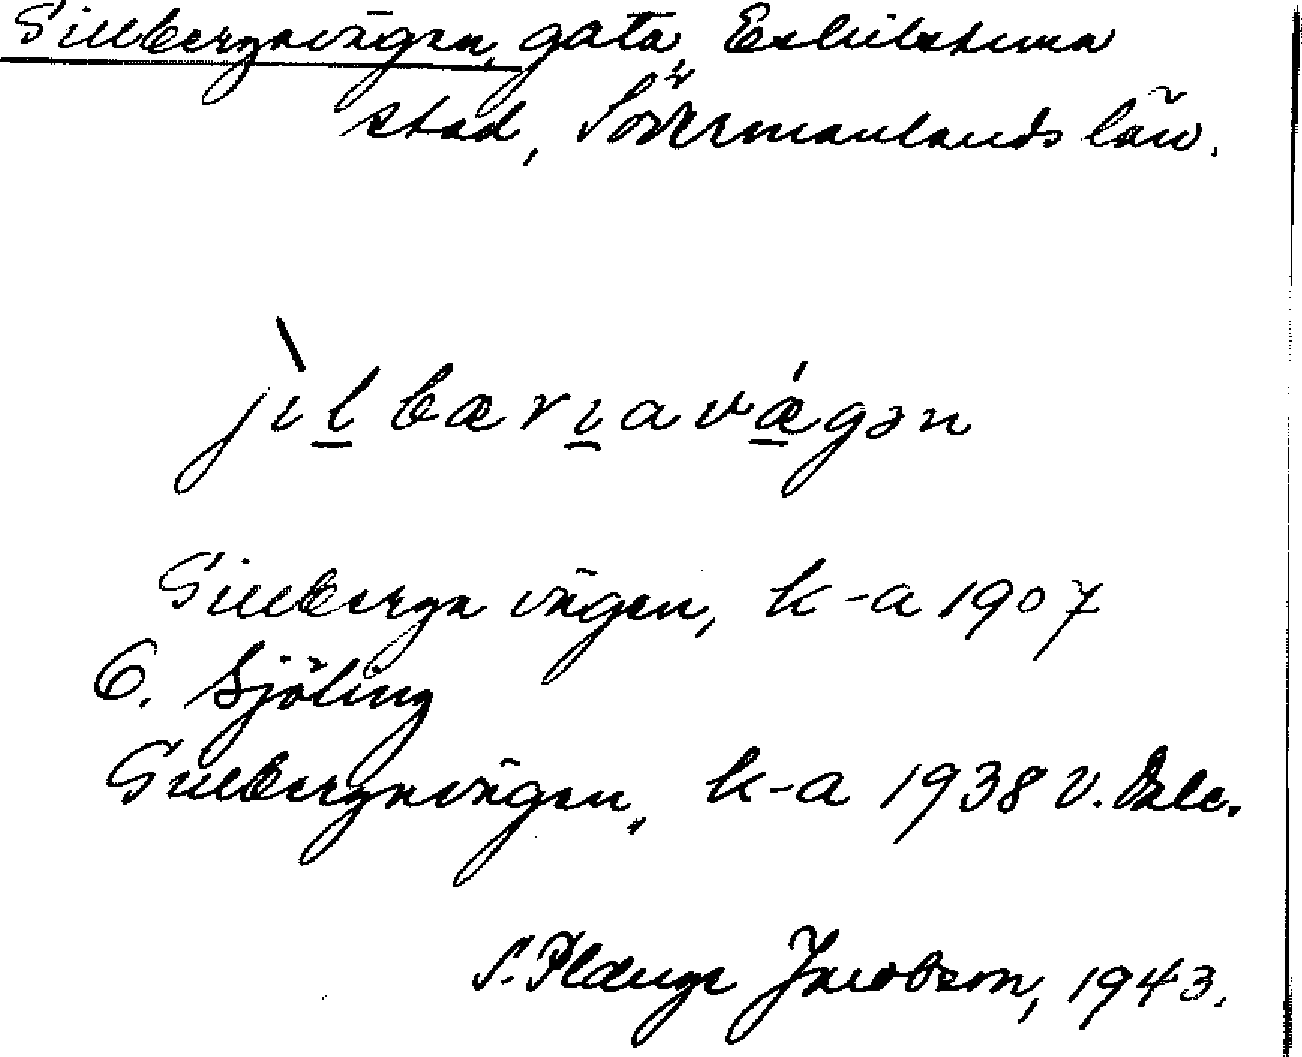 Gillbergavägen, gata, Eskilstuna
stad, Södermanlands län.
jìlbærıavǽgən
Gillberga vägen, k-a 1907
C. Sjöling
Gillbergavägen, k-a 1938 v. Dale.
S. Plænge Jacobson, 1943.